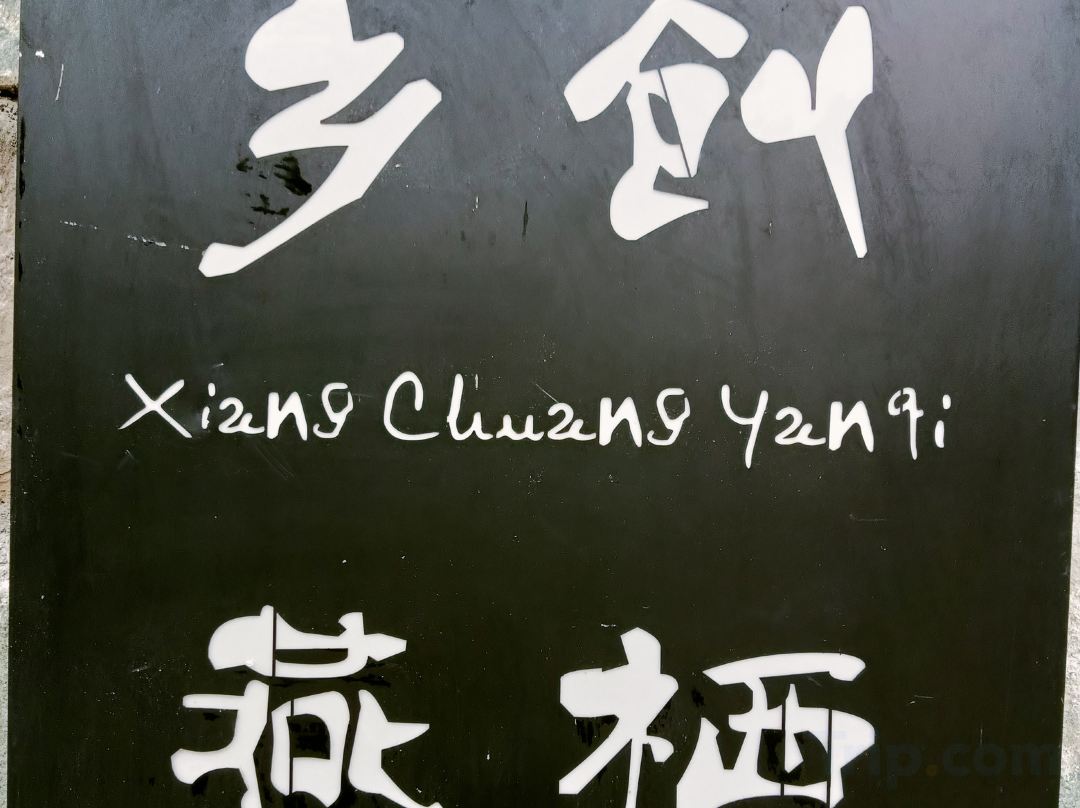 乡創
Xiang Chuang Yanqi
燕栖
Trip.com